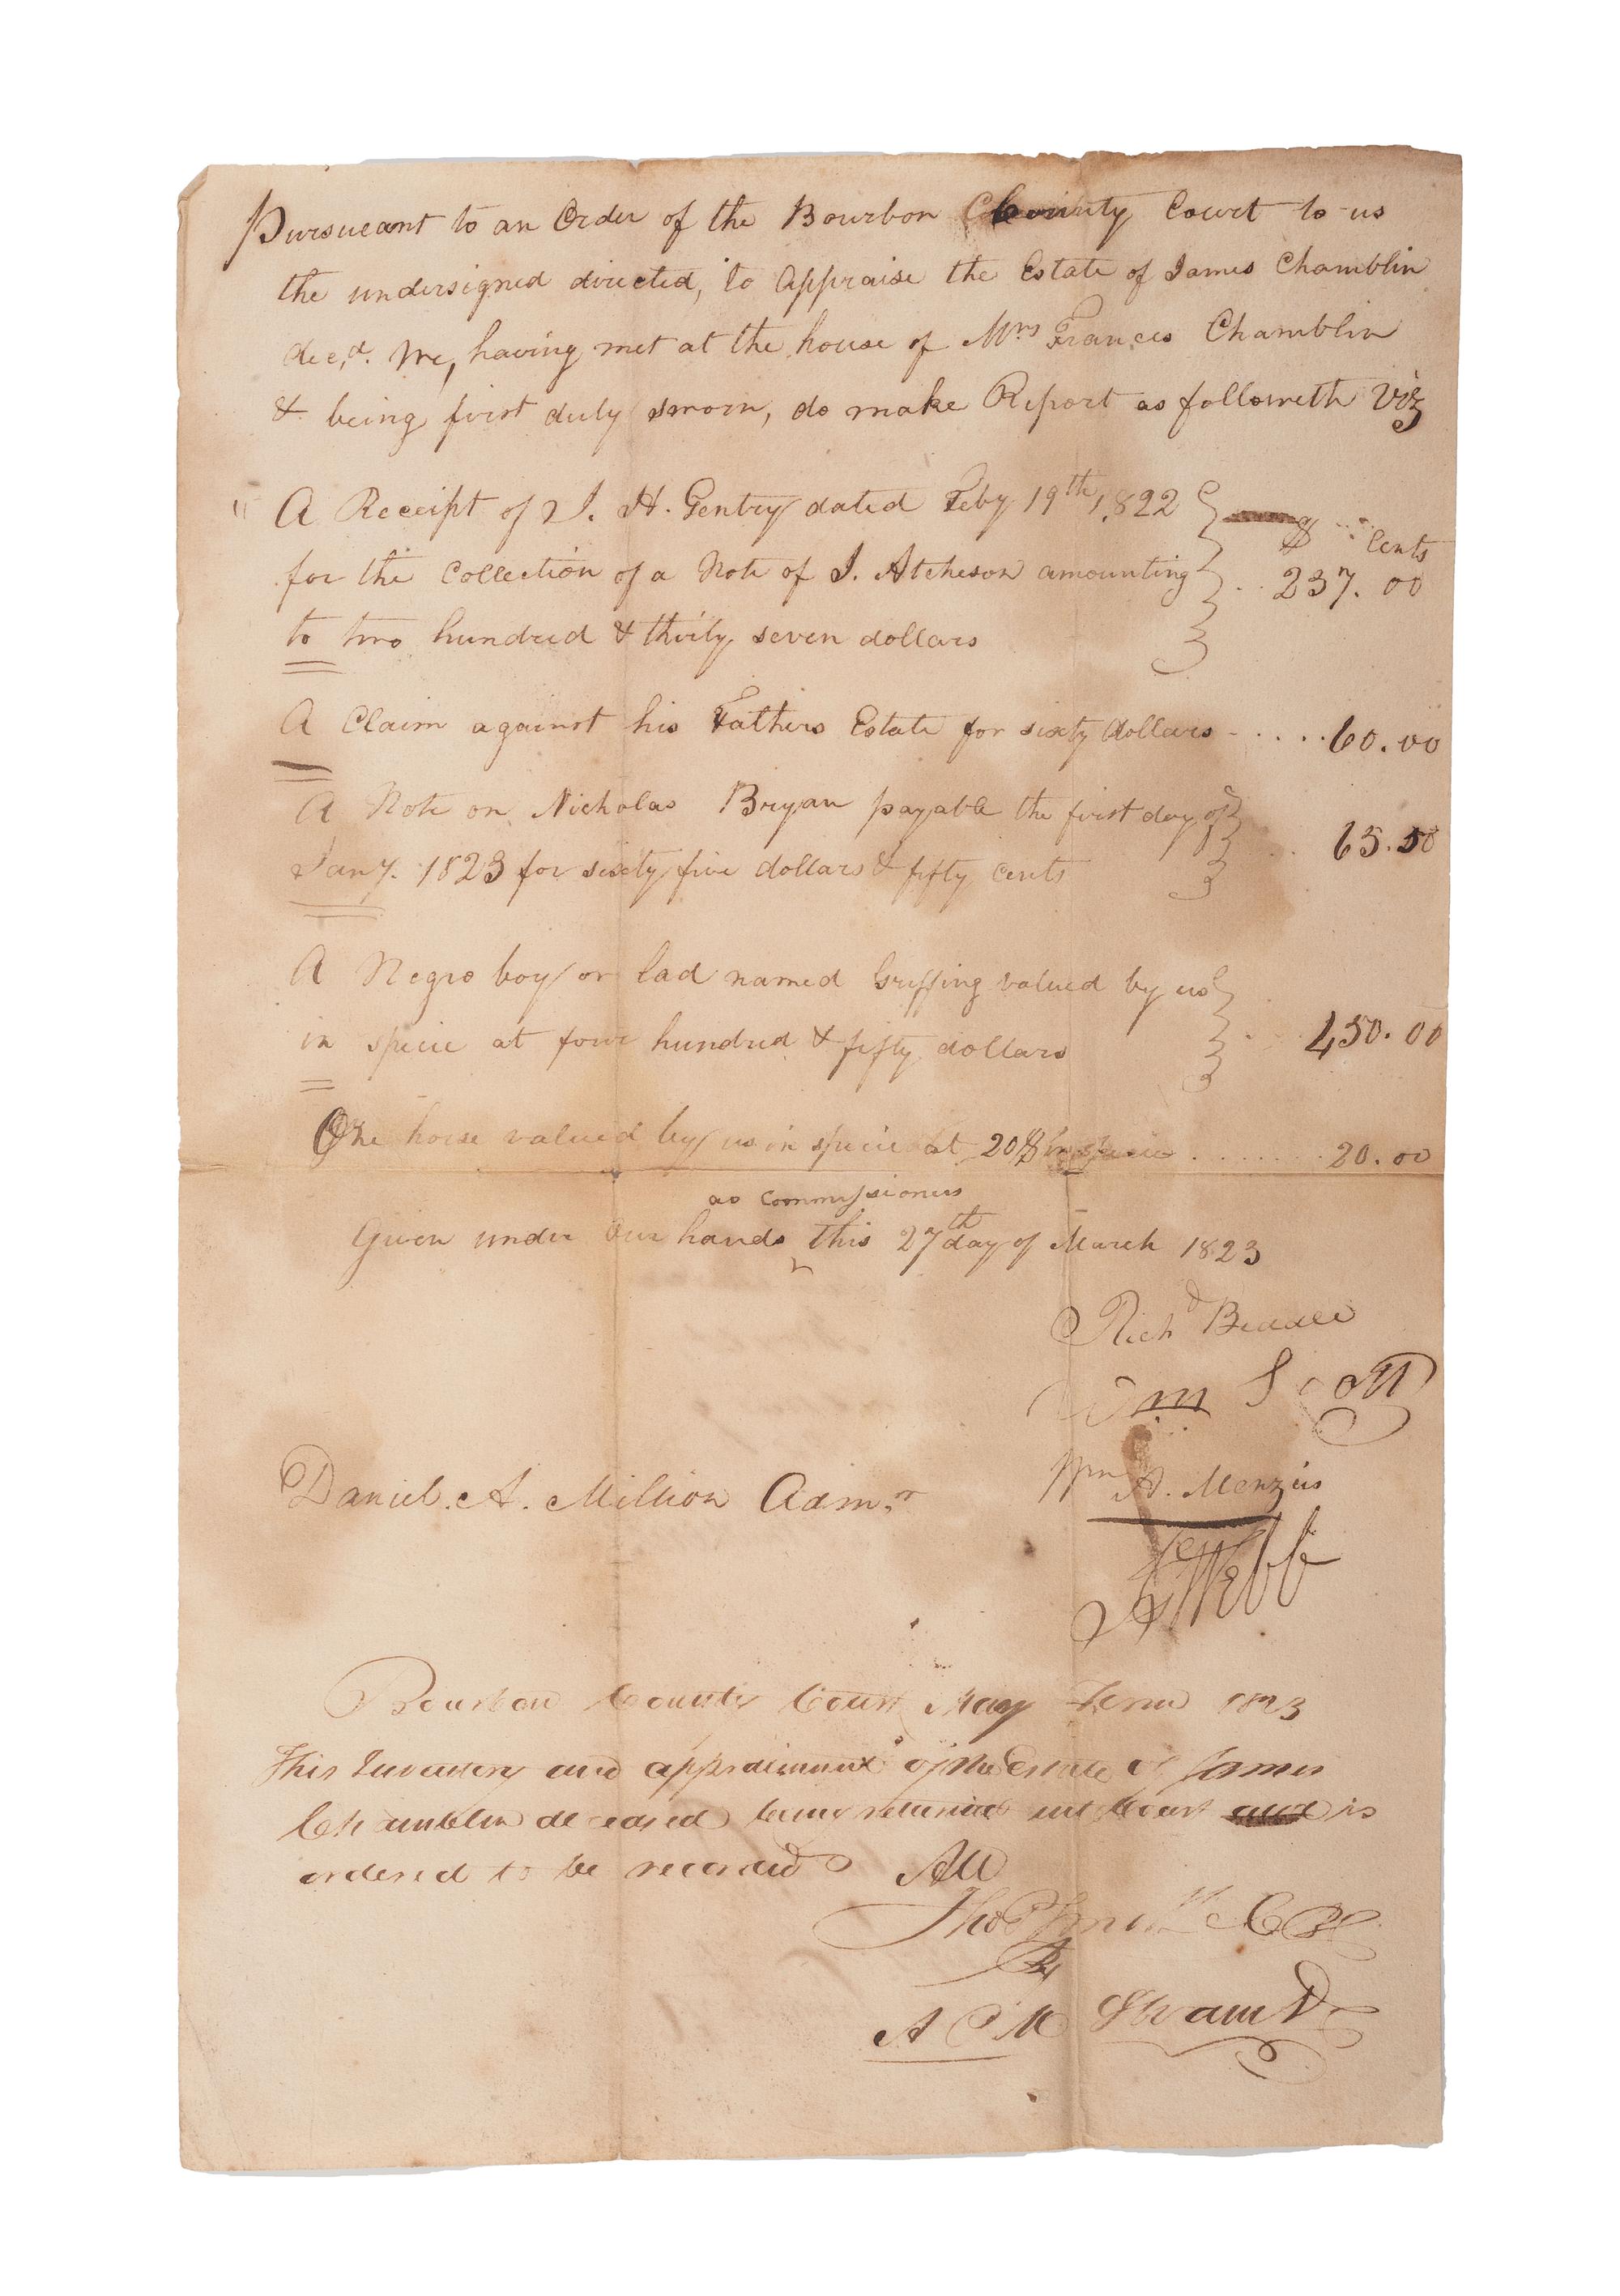 Pursueant to an Order of the Bourbon County Court to us
the undersigned directed, to Appraise the Estate of James Chamblin
dec,d. We, having met at the house of Mrs Frances Chamblin
& being first duly sworn, do make Report as followeth Viz
" A Receipt of J. H. Gentry dated Feby 19th 1822
$ Cents
for the Collection of a Note of J. Atcheson amounting .. 237.00
to two hundred & thirty seven dollars
A Claim against his Fathers Estate for sixty dollars ..... 60.00
A Note on Nicholas Bryan payable the first day of
Jany. 1823 for sixty five dollars & fifty cents .. 65.50
A Negro boy or lad named Griffing valued by us
in specie at four hundred & fifty dollars .. 450.00
One horse valued by us in specie at 20$ in specie ....... 20.00
as Commissioners
Given under our hands this 27th day of March 1823
Richd
Wm Scott
Wm A. Menzies
Webb
Daniel. A. Million Adm.r
Bourbon County Court May Term 1823
This Inventory and appraisement of the Estate of James
Chamblin deceased being returned into Court and is
ordered to be recorded Att
Tho P Smith C B C
By
A C M Shawn D C